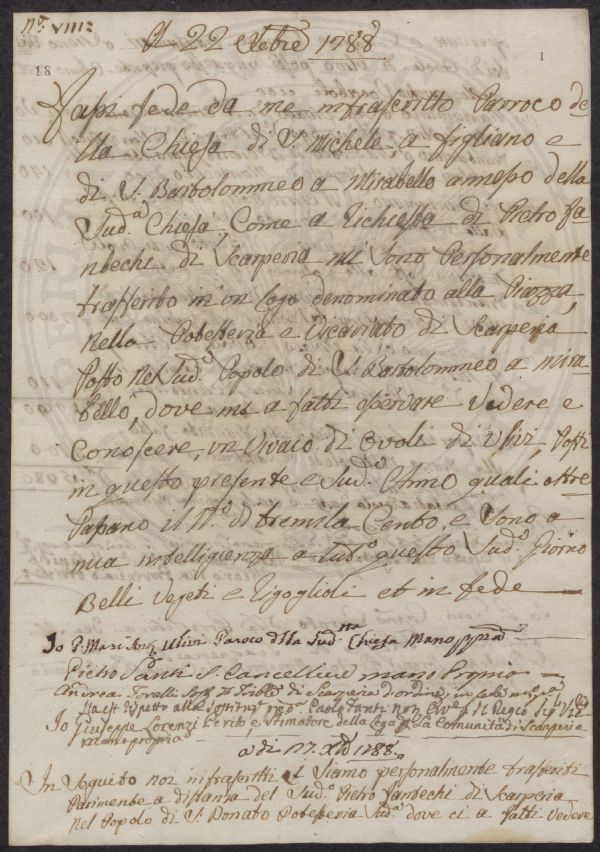 N.º VIIII
A 22 8bre 1788
18
1
Fassi fede da me infrascritto Parroco de
lla Chiesa di S. Michele a figliano e
di S. Bartolommeo a Mirabello annesso della
Sud.ª Chiesa, Come a Richiesta di Pietro fa
ntechi di Scarperia mi sono Personalmente
trasferito in un logo denominato alla Piazza,
nella Potesteria e Vicariato di Scarperia
Posto nel Sud.º Popolo di S. Bartolommeo a mira
bello, dove mi a fatti osservare Vedere e
Conoscere, un Vivaio di Ovoli di Ulivi, Posti
in questo presente e Sud.º Anno quali, oltre
Passano il N.º di tremila Cento, e Sono a
mia intelligienza a tut.º questo Sud.º Giorno
Belli Vegeti e Rigogliosi et in fede
Io P. Ulivi Paroco della Sud.ª Chiesa Mano
Pietro Santi S. Cancelliere mano Propria
Andrea Torelli di Scarperia d'ordine
Rispetto alla Paolo Santi non
Io Giuseppe Lorenzi Perito, e Stimatore della Lega, e La Comunità di Scarperia
mano propria
a dì 17. Xbre 1788.
In Seguito noi infrascritti ci Siamo personalmente trasferiti
Parimente a distanza del Sud.º Pietro fantechi di Scarperia
nel Popolo di S. Donato Potesteria Sud.ª dove ci a fatti vedere